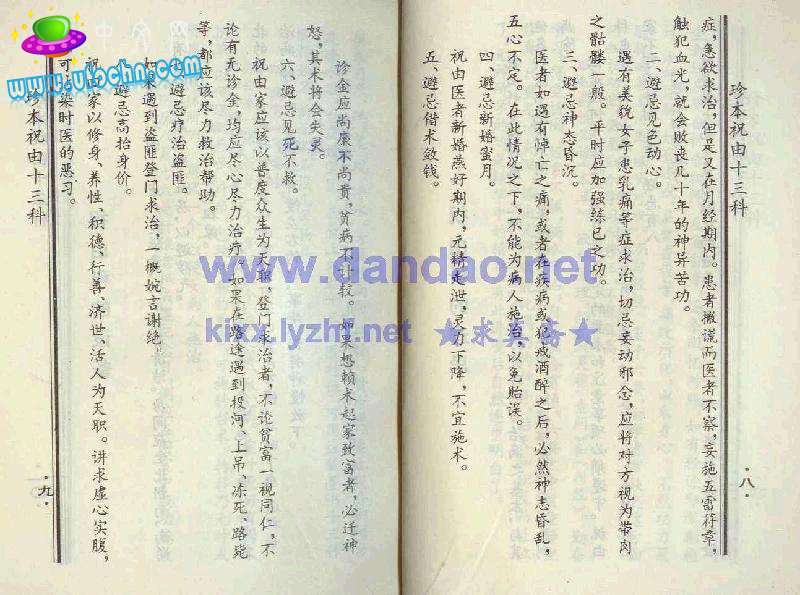 珍本祝由十三科
症,急欲求治,但是又在月经期内。患者撒谎而医者不察,妄施五雷符章,
触犯血光,就会败丧几十年的神异苦功。
二、避忌见色动心。
遇有美貌女子患乳痛等症求治,切忌妄动邪念,应将对方视为带肉
之骷髅一般。平时应加强练已之功。
三、避忌神态昏沉。
医者如遇有悼亡之痛,或者在疾病或犯戒酒醉之后,必然神志昏乱,
五心不定。在此情况之下,不能为病人施治,以免贻误。
四、避忌新婚蜜月。
祝由医者新婚燕好期内,元精走泄,灵力下降,不宜施术。
五、避忌借术敛钱。
·八·
诊金应尚廉不尚贵,贫病不计较。如果想赖术起家致富者,必迁神
怒,其术将会失灵。
六、避忌见死不救。
祝由家应该以普度众生为天职,登门求治者,不论贫富一视同仁,不
论有无诊金,均应尽心尽力治疗。如果在路途遇到投河、上吊、冻死、路毙
等,都应该尽力救治帮助。
避忌疗治盗匪。
如果遇到盗匪登门求治,一概婉言谢绝。
避忌高抬身价。
祝由家以修身、养性、积德、行善、济世、活人为天职。讲求虚心实腹,
可 染时医的恶习。
珍本祝由十三科
·九·
www.dandao.net
kixx.lyzhf.net ★求真斋★
www.ufochn.com